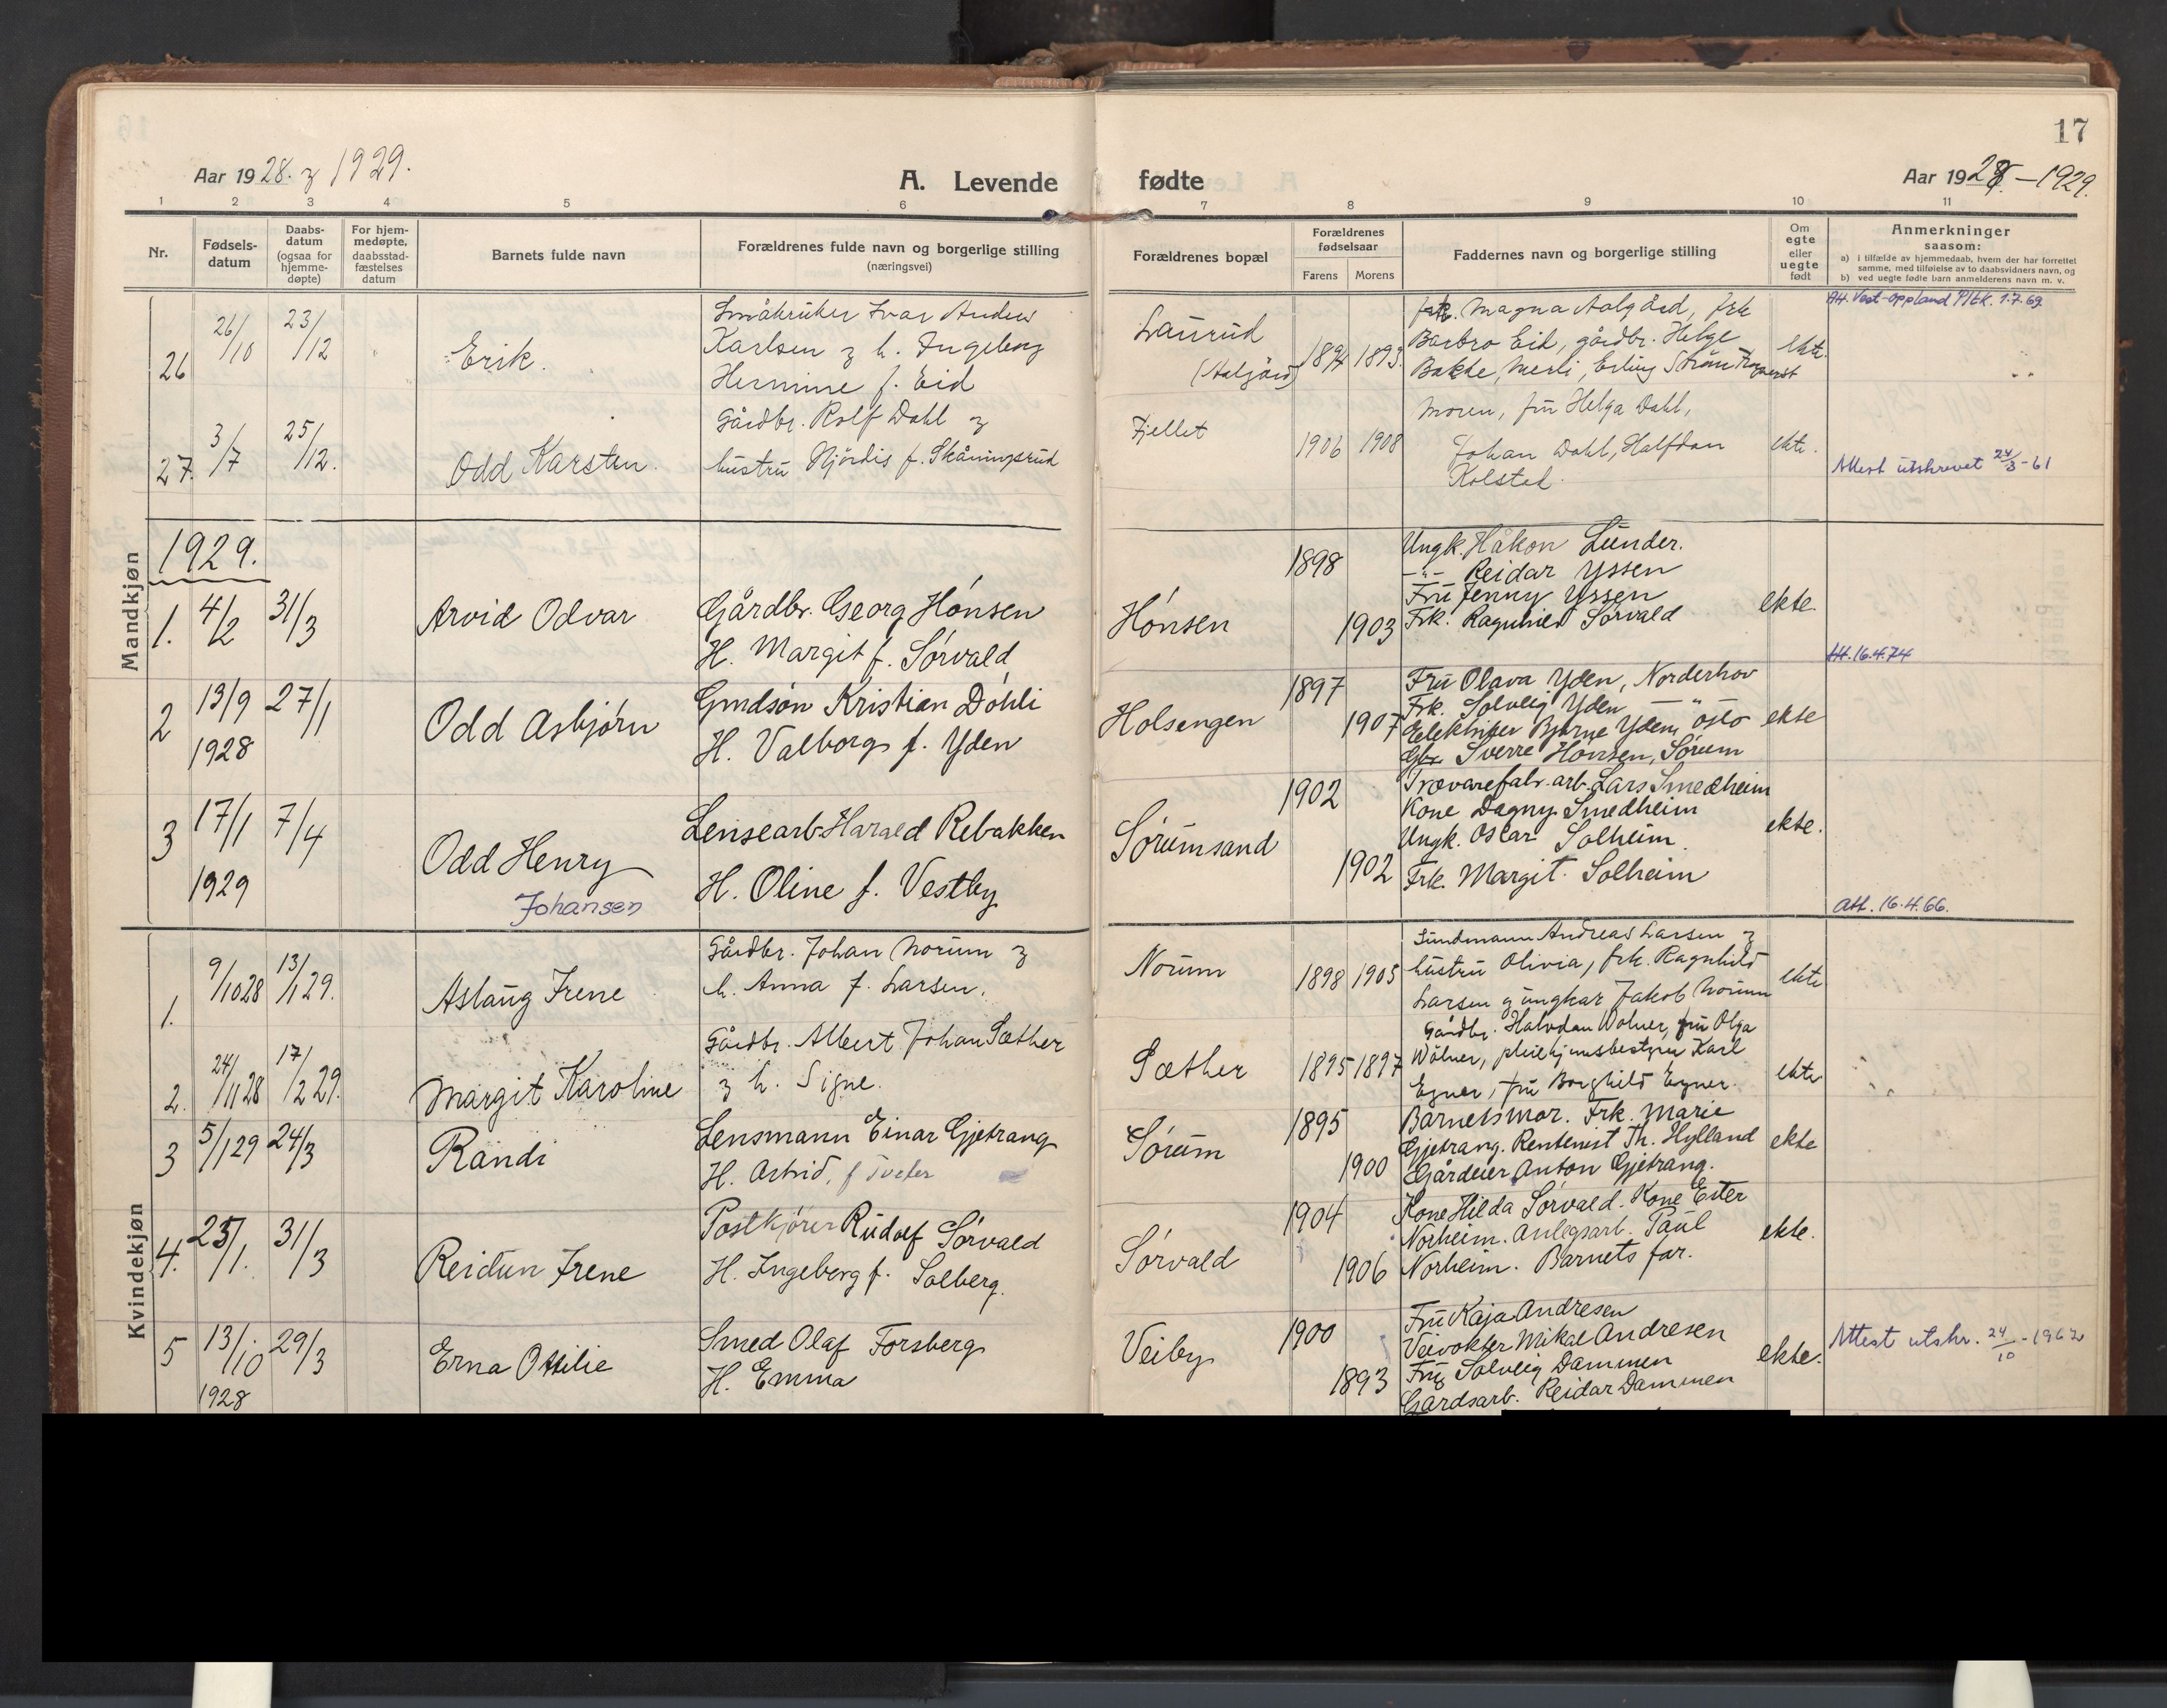 17
Aar 1928 & 1929.
A. Levende
fødte
Aar 1928 — 1929.
1 2 3 4 5 6 7 8 9 10 11
Nr.
Fødsels-
datum
Daabs-
datum
(ogsaa for
hjemme-
døpte)
For hjem-
medøpte,
daabsstad-
fæstelses
datum
Barnets fulde navn
Forældrenes fulde navn og borgerlige stilling
(næringsvei)
Forældrenes bopæl
Forældrenes
fødselsaar
Farens Morens
Faddernes navn og borgerlige stilling
Om
egte
eller
uegte
født
Anmerkninger
saasom:
a) i tilfælde av hjemmedaab, hvem der har forrettet
samme, med tilføielse av to daabsvidners navn, og
b) ved uegte fødte barn anmelderens navn m. v.
Mandkjøn
26 26/10 23/12
Erik.
Småbruker Ivar Anders
Karlsen & h. Ingeborg
Hermine f. Eid
Laurud
(Aalgård)
1894 1893.
frk. Magna Aalgård, frk
Barbro Eid, gårdbr. Helge
Bakke, Merli, Erling Strøm
ekte.
Att. Vest-Oppland 1.7.69.
27. 3/7 25/12.
Odd Karsten.
Gårdbr. Rolf Dahl &
hustru Hjördis f. Skåningsrud
Fjellet
1906 1908
Moren, fru Helga Dahl,
Johan Dahl, Halfdan
Kolstad.
ekte.
Attest utskrevet 24/3-61
1929.
1. 4/2 31/3
Arvid Odvar
Gårdbr. Georg Hónsen
H. Margit f. Sórvald
Hónsen
1898
1903
Ungk. Håkon Lunder.
-"- Reidar Yssen
Fru Jenny Yssen
Frk. Ragnhild Sórvald
ekte.
Att. 16.4.74
2 13/9 27/1
1928
Odd Asbjørn
Grndsøn Kristian Dóhli
H. Valborg f. Yden
Holsengen
1897
1907
Fru Olava Yden, Norderhov
Frk. Solveig Yden — " —
Elektriker Bjarne Yden, Oslo
Gbr. Sverre Hónsen, Sórum
ekte
3 17/1 7/4
1929
Odd Henry
Johansen
Lensearb. Harald Rebakken
H. Oline f. Vestby
Sórumsand
1902
1902
Trævarefabr. arb. Lars Smedheim
Kone Dagny Smedheim
Ungk. Oscar Solheim.
Frk. Margit Solheim
ekte.
Att. 16.4.66.
Kvindekjøn
1. 9/10 28 13/1 29.
Aslaug Irene
Gårdbr. Johan Norum &
h. Anna f. Larsen.
Norum
1898 1905
Andreas Larsen &
hustru Olivia, frk. Ragnhild
Larsen & ungkar Jakob Norum
ekte
2. 24/11 28 17/2 29.
Margit Karoline
Gårdbr. Albert Johan Sæther
& h. Signe.
Sæther
1895 1897
Gårdbr. Halvdan Wølner, fru Olga
Wølner, pleiehjemsbestyrer Karl
Egner, fru Borghild Egner.
ekte
3 5/1 29 24/3
Randi
Lensmann Einar Gjetrang
H. Astrid, f Tveter
Sórum
1895
1900
Barnets mor. Frk. Marie
Gjetrang. Rentenist Th. Hylland
Gårdeier Anton Gjetrang.
ekte
4. 25/1. 31/3
Reidun Irene
Postkjórer Rudolf Sórvald
H. Ingeborg f. Solberg.
Sórvald
1904
1906
Kone Hilda Sórvald. Kone Ester
Norheim. Anlegsarb. Paul
Norheim. Barnets far.
ekte.
5 13/10 29/3
1928
Erna Ottilie
Smed Olaf Forsberg
H. Emma
Veiby
1900
1893
Fru Kaja Andresen
Veivokter Mikal Andresen
Fru Solveig Dammen
Gardsarb. Reidar Dammen
ekte.
Attest utskr. 24/10-1962